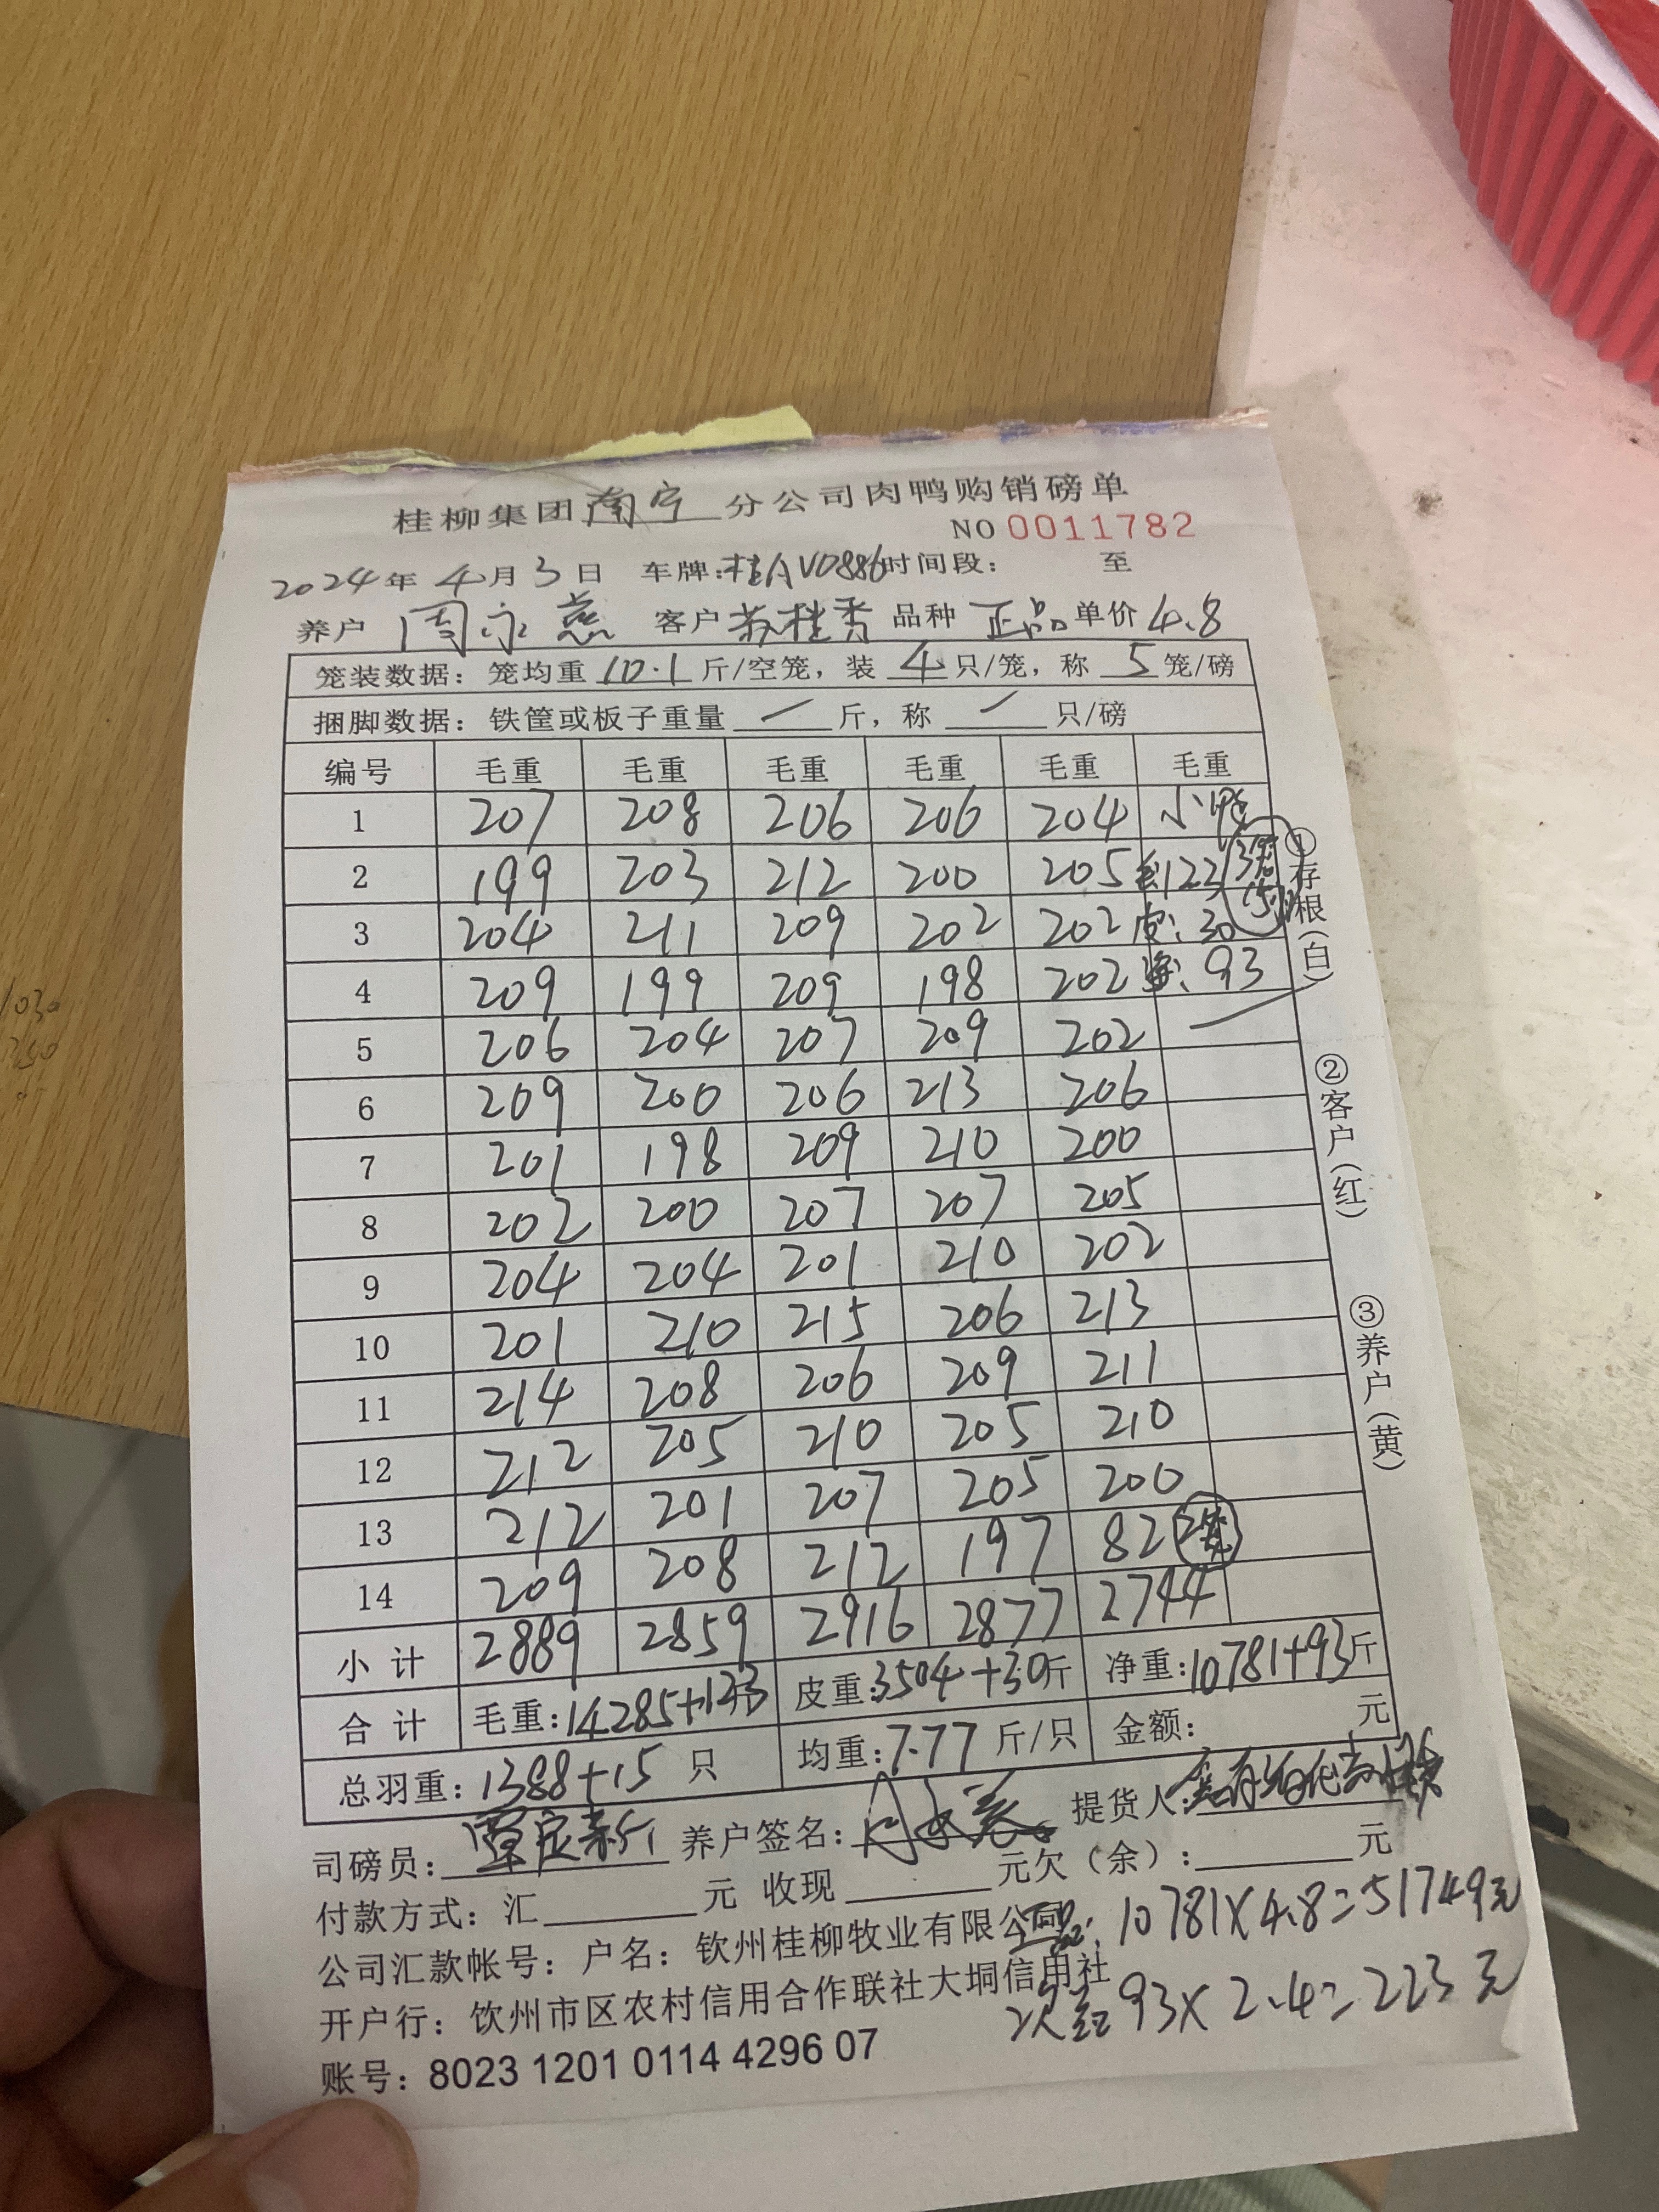 桂柳集团南宁分公司肉鸭购销磅单
NO 0011782
2024年4月3日 车牌:桂AVD886时间段: 至
养户 周永燕 客户苏桂香 品种 正品 单价4.8
笼装数据: 笼均重 10.1 斤/空笼, 装 4 只/笼, 称 5 笼/磅
捆脚数据: 铁筐或板子重量 — 斤, 称 — 只/磅
编号 毛重 毛重 毛重 毛重 毛重 毛重
1 207 208 206 206 204 小鸭
2 199 203 212 200 205 毛:123 3笼 15只
3 204 211 209 202 202 皮:30
4 209 199 209 198 202 净:93
5 206 204 207 209 202 —
6 209 200 206 213 206
7 201 198 209 210 200
8 202 200 207 207 205
9 204 204 201 210 202
10 201 210 215 206 213
11 214 208 206 209 211
12 212 205 210 205 210
13 212 201 207 205 200
14 209 208 212 197 82 2笼
小计 2889 2859 2916 2877 2744
合计 毛重:14285+123 皮重:3504+30斤 净重:10781+93斤
总羽重:1388+15 只 均重:7.77 斤/只 金额: 元
司磅员: 养户签名: 提货人:
付款方式: 汇 元 收现 元欠(余): 元
公司汇款帐号: 户名: 钦州桂柳牧业有限公司
正品: 10781×4.8=51749元
开户行: 钦州市区农村信用合作联社大垌信用社
次品 93×2.4=223元
账号: 8023 1201 0114 4296 07
①存根(白)
②客户(红)
③养户(黄)